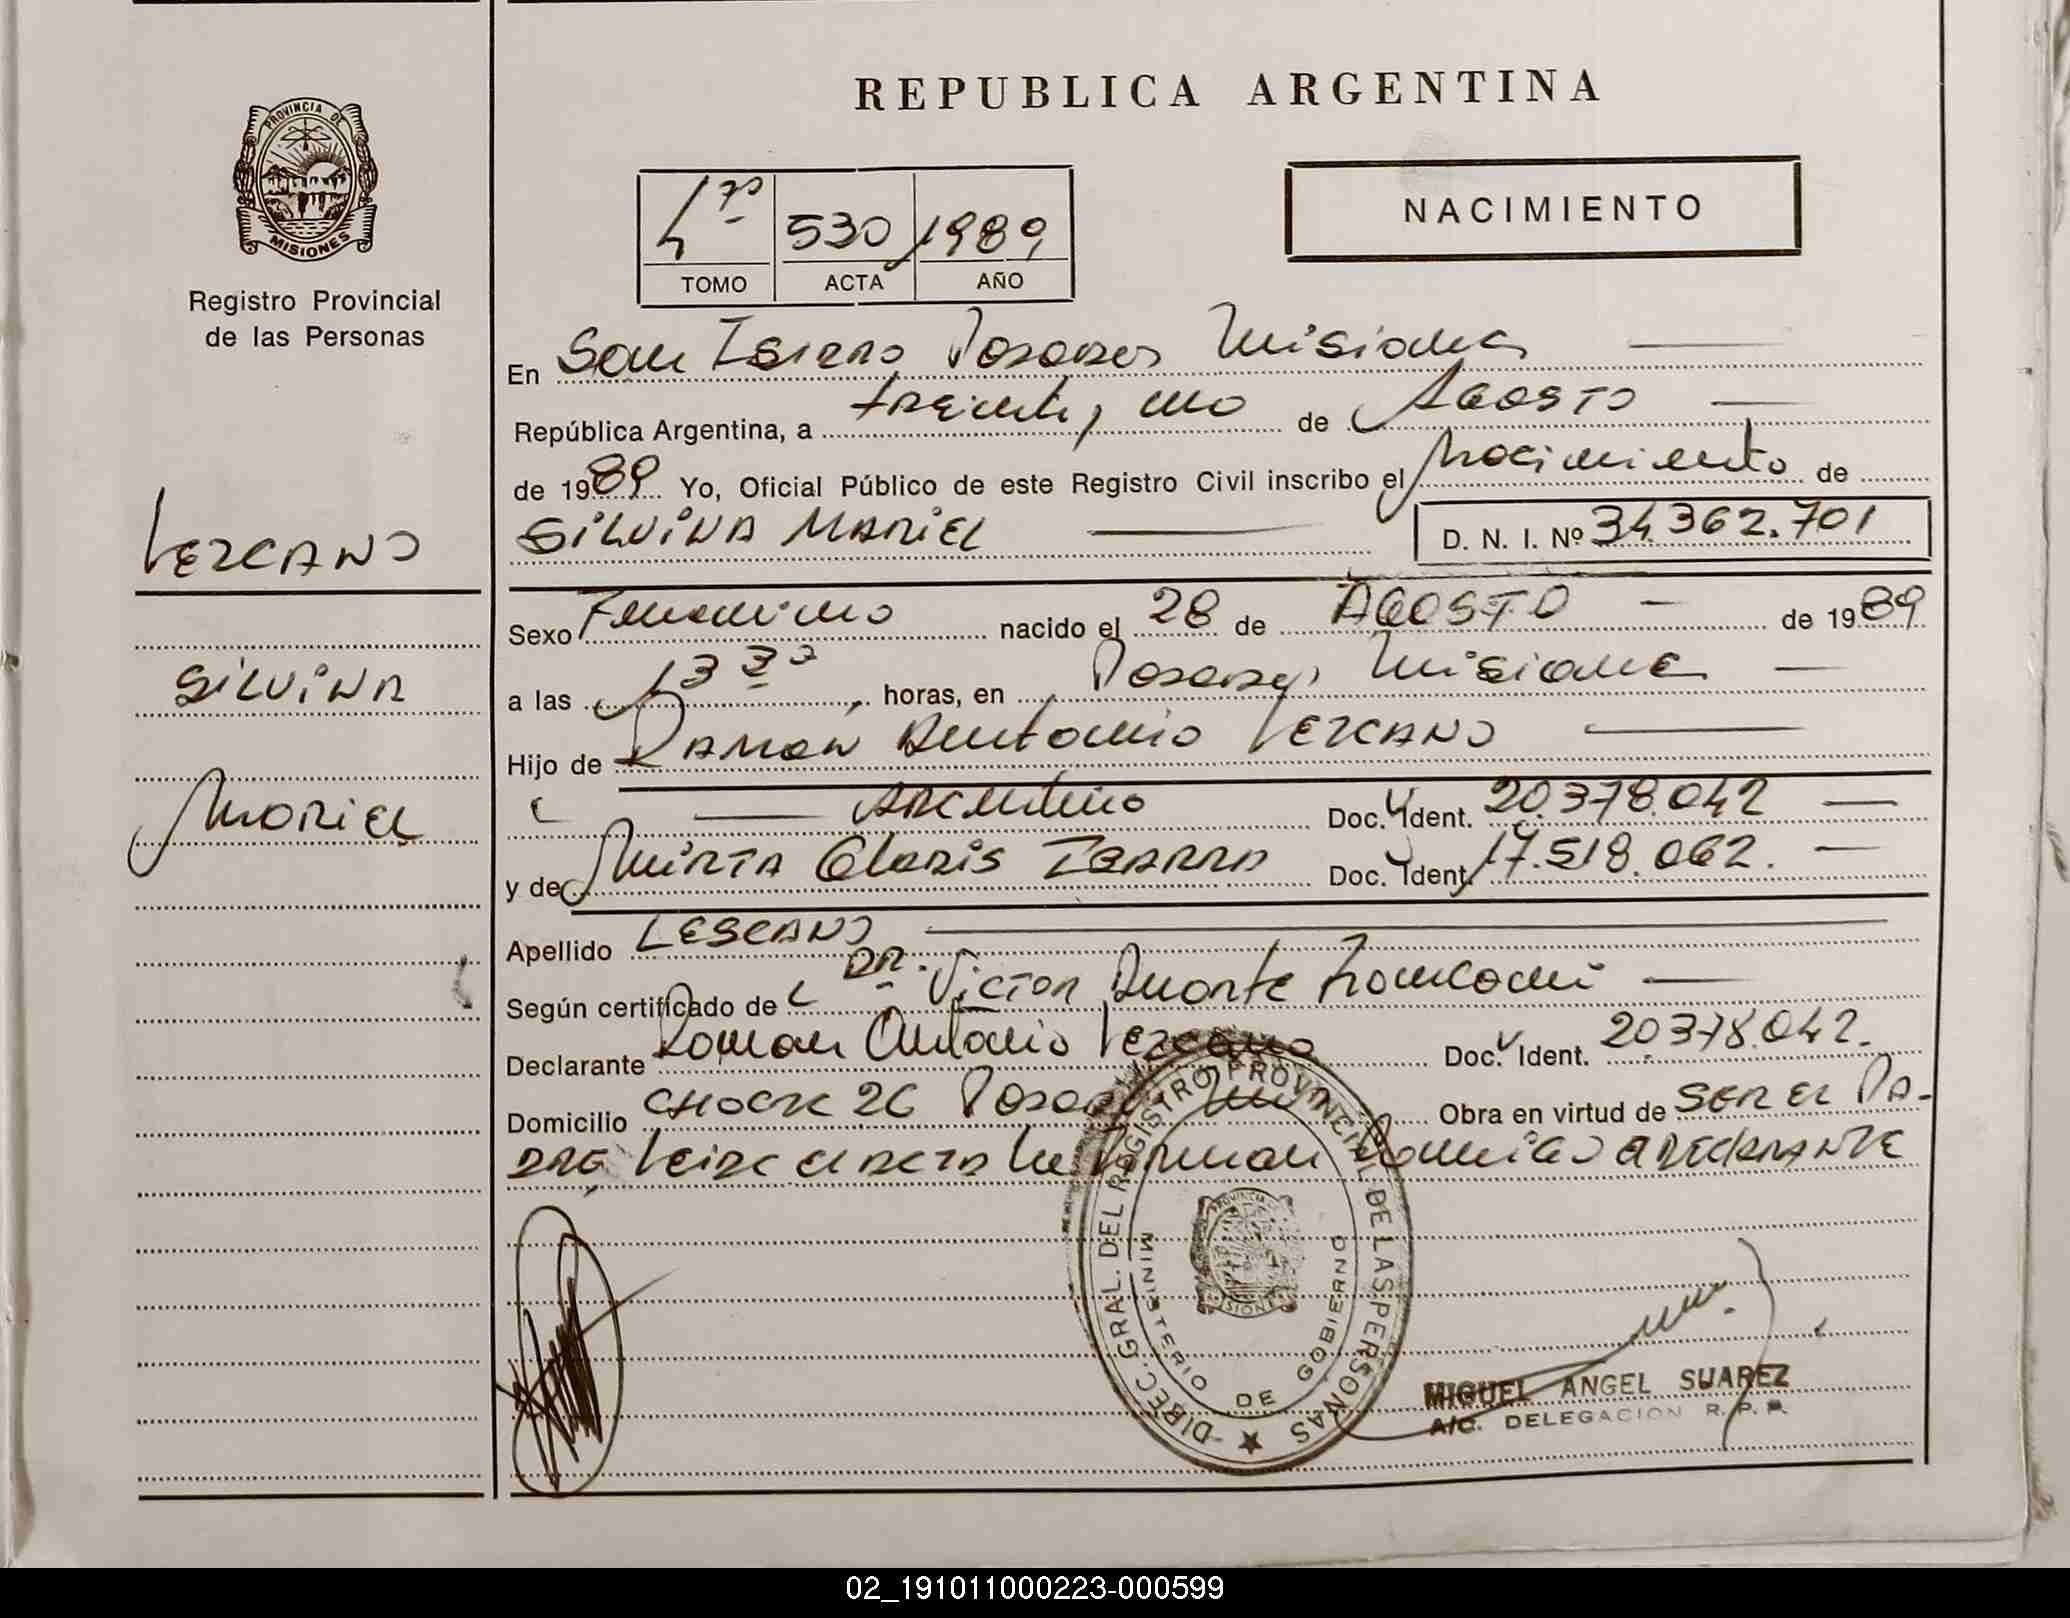 REPUBLICA ARGENTINA
PROVINCIA DE
MISIONES
Registro Provincial
de las Personas
530 1989
TOMO ACTA AÑO
NACIMIENTO
En San Isidro Posadas Misiones
República Argentina, a treinta y uno de Agosto
de 1989 Yo, Oficial Público de este Registro Civil inscribo el Nacimiento de
SILVINA MARIEL D. N. I. Nº 34.362.701
LEZCANO
SILVINA
MARIEL
Sexo Femenino nacido el 28 de AGOSTO de 1989
a las 13 30 horas, en Posadas, Misiones
Hijo de RAMON Antonio LEZCANO
Argentino Doc. Ident. 20.378.042
y de MIRTA Gladis IBARRA Doc. Ident. 17.518.062.
Apellido LESCANO
Según certificado de DR. Victor Duarte
Declarante Ramon Antonio Lezcano Doc. Ident. 20378.042.
Domicilio CHACRA 26 Posadas Obra en virtud de SER EL PA-
DRE, Leida el acta la Firman DECLARANTE
DIREC. GRAL. DEL REGISTRO PROVINCIAL DE LAS PERSONAS
MINISTERIO DE GOBIERNO
MIGUEL ANGEL SUAREZ
A/C. DELEGACION R. P. P.
02_191011000223-000599